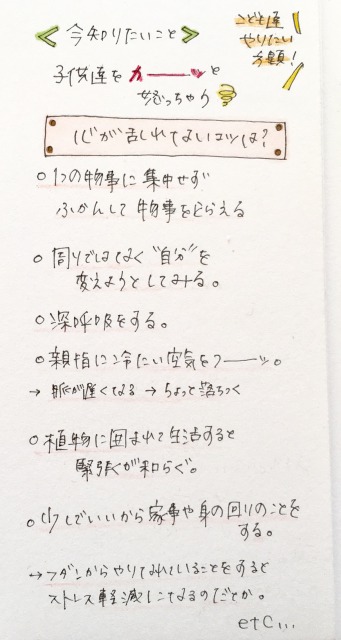 <今知りたいこと>
こども達
やりたい
方題!
子供達をカーーッと
怒っちゃう
心が乱れてないコツは?
○1つの物事に集中せず
ふかんして物事をとらえる
○周りではなく"自分"を
変えようとしてみる。
○深呼吸をする。
○親指に冷たい空気をフーーッ。
→脈が遅くなる→ちょっと落ちつく
○植物に囲まれて生活すると
緊張が和らぐ。
○少しでいいから家事や身の回りのことを
する。
→フダンからやりなれていることをすると
ストレス軽減になるのだとか。
etc...